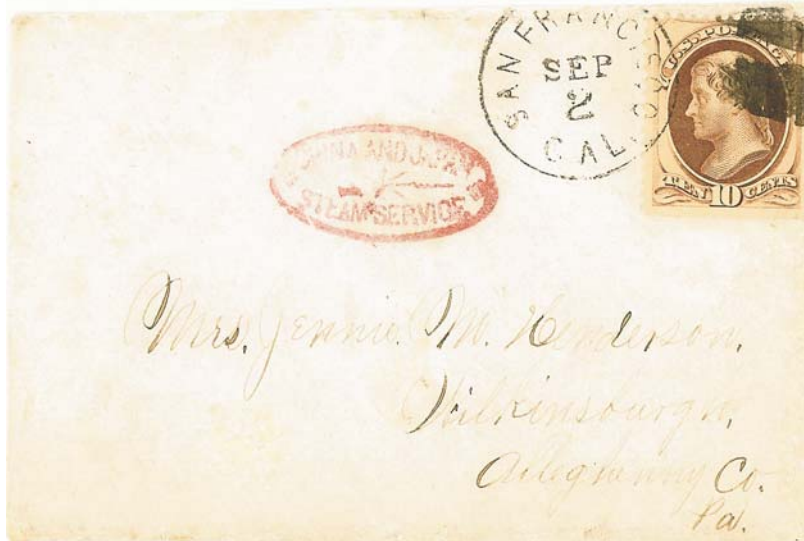 SAN FRANCISCO
SEP
2
CAL.
U.S. POSTAGE
TEN 10 CENTS
CHINA AND JAPAN
STEAM SERVICE
Mrs. Jennie. M. Henderson,
Wilkinsburgh,
Allegheny Co.
Pa.